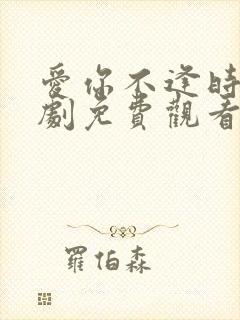 愛你不逢時
劇免費觀看
羅伯森